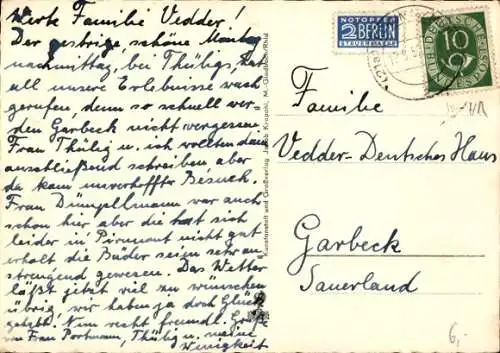 Werte Familie Vedder!
Der gestrige, schöne Montag
nachmittag, bei Thüligs, hat
all unsere Erlebnisse wach
gerufen, denn so schnell wer
den Garbeck nicht vergessen
Frau Thülig u. ich wollten dann
anschließend schreiben aber
da kam unverhoffter Besuch.
Frau Dümpelmann war auch
schon hier aber die hat sich
leider in Pirmont nicht gut
erholt die Bäder seien sehr an
strengend gewesen. Das Wetter
läßt jetzt viel zu wünschen
übrig, wir haben ja doch Glück
gehabt. Nun recht freundl. Grüße
von Frau Portmann, Thülig u. meine
Wenigkeit
Kunstanstalt und Großverlag Jakob Krapohl, M. Gladbach/Rhld
NOTOPFER
2 BERLIN
STEUERMARKE
DEUTSCHE BUNDESPOST
10
Familie
Vedder-Deutsches Haus
Garbeck
Sauerland
6,-